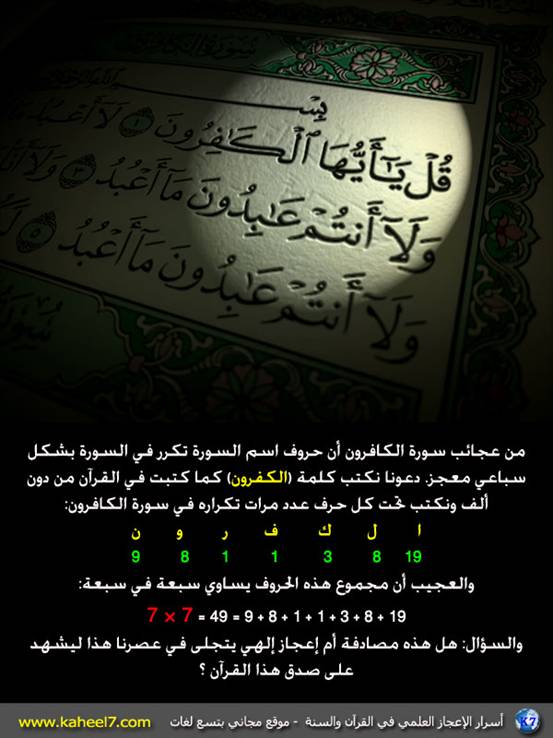 سورة الكافرون
بِسْ
قُلْ يَـٰٓأَيُّهَا ٱلْكَـٰفِرُونَ ١ لَآ أَعْبُدُ
وَلَآ أَنتُمْ عَـٰبِدُونَ مَآ أَعْبُدُ ٣ وَلَآ أَنَا۠
وَلَآ أَنتُمْ عَـٰبِدُونَ مَآ أَعْبُدُ ٥
من عجائب سورة الكافرون أن حروف اسم السورة تكرر في السورة بشكل
سباعي معجز. دعونا نكتب كلمة (الكفرون) كما كتبت في القرآن من دون
ألف ونكتب تحت كل حرف عدد مرات تكراره في سورة الكافرون:
ا ل ك ف ر و ن
19 8 3 1 1 8 9
والعجيب أن مجموع هذه الحروف يساوي سبعة في سبعة:
7 × 7 = 49 = 9 + 8 + 1 + 1 + 3 + 8 + 19
والسؤال: هل هذه مصادفة أم إعجاز إلهي يتجلى في عصرنا هذا ليشهد
على صدق هذا القرآن ؟
K7 أسرار الإعجاز العلمي في القرآن والسنة - موقع مجاني بتسع لغات www.kaheel7.com